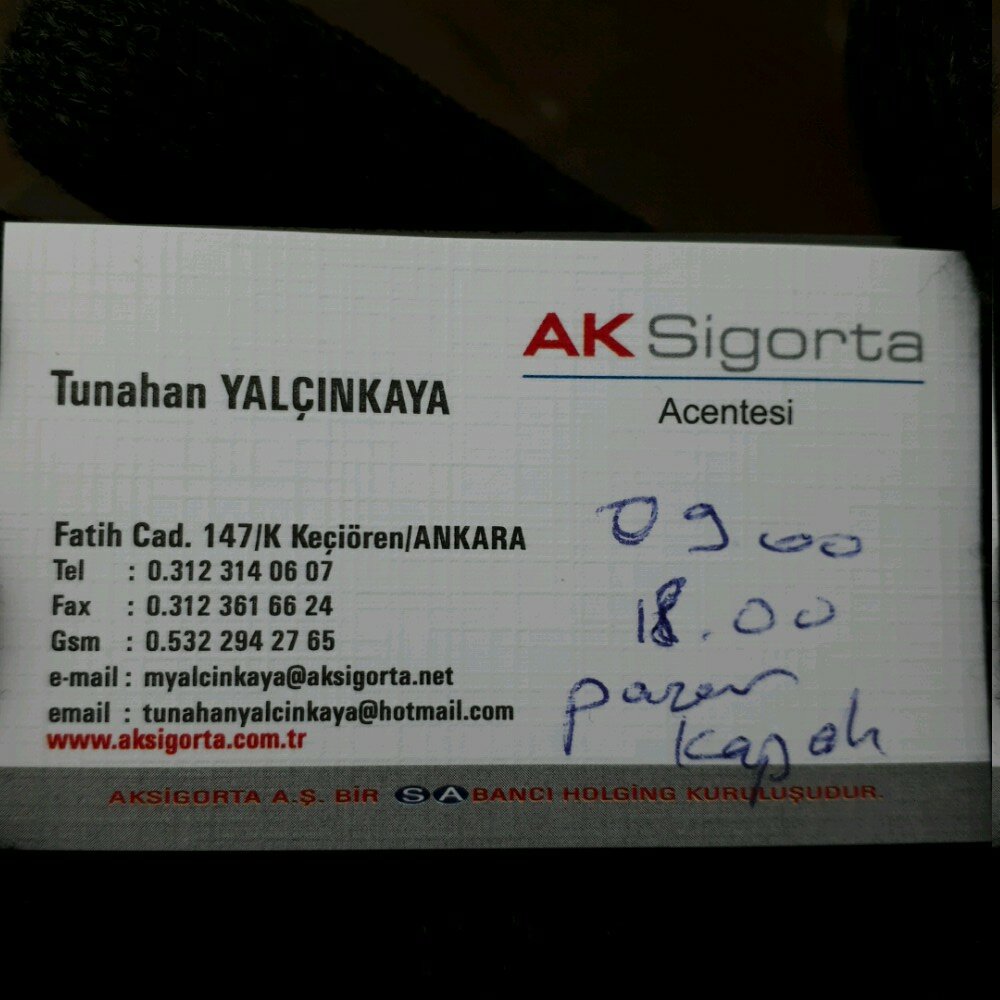 AKSigorta
Acentesi
Tunahan YALÇINKAYA
Fatih Cad. 147/K Keçiören/ANKARA
Tel : 0.312 314 06 07
Fax : 0.312 361 66 24
Gsm : 0.532 294 27 65
e-mail : myalcinkaya@aksigorta.net
email : tunahanyalcinkaya@hotmail.com
www.aksigorta.com.tr
09 00
18.00
pazar
kapalı
AKSİGORTA A.Ş. BİR SABANCI HOLGİNG KURULUŞUDUR.